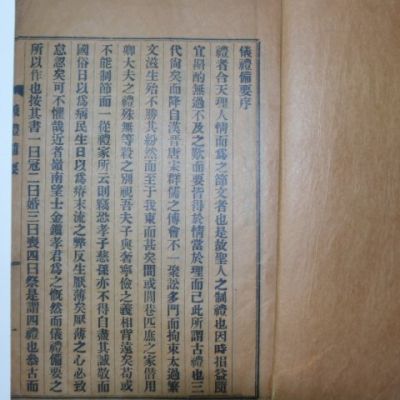 儀禮備要序
禮者合天理人情而爲之節文者也是故聖人之制禮也因時損益隨
宜斟酌無過不及之歎而要皆得於情當於理而已此所謂古禮也三
代尙矣而降自漢晉唐宋群儒之傅會不一聚訟多門而拘束太過繁
文滋生殆不勝其紛然而至于我東而甚矣間或閭巷匹庶之家借用
卿大夫之禮殊無等殺之別視吾夫子與奢寧儉之義相背遠矣苟或
不能制節而一從禮家所云則竊恐孝子慈孫亦不得自盡其誠敬而
國俗日以爲病民生日以爲瘵末流之弊反生厭薄矣厭薄之心必致
怠忽矣可不懼哉近者嶺南望士金鑑孝君爲之慨然而儀禮備要之
所以作也按其書一曰冠二曰婚三曰喪四曰祭是謂四禮也參古而
儀禮備要